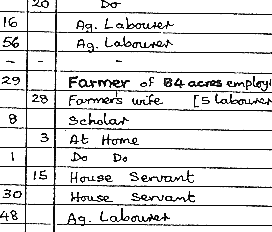 20 Do
16 Ag. Labourer
56 Ag. Labourer
- - -
29 Farmer of 84 acres employi
28 Farmer's wife [5 labourer
8 Scholar
3 At Home
1 Do Do
15 House Servant
30 House Servant
48 Ag. Labourer